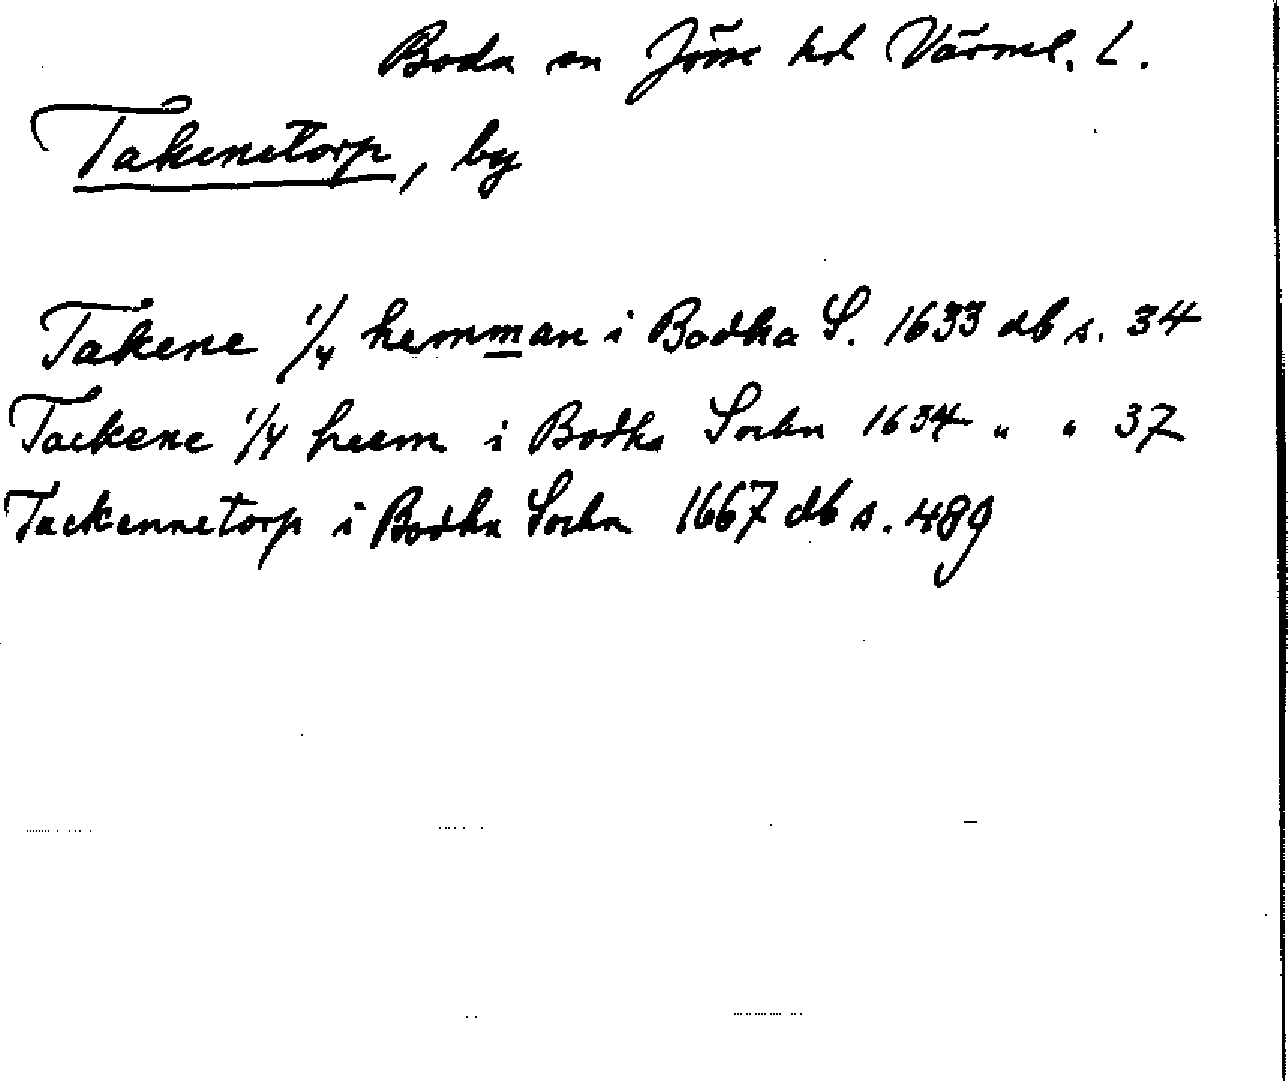 Boda sn Jösse hd Värml. L.
Takenetorp, by
Takene 1/4 hemman i Bodha S. 1633 db s. 34
Tackene 1/4 heem i Bodha Sochn 1634 " " 37
Tackennetorp i Bodha Sochn 1667 db s. 489